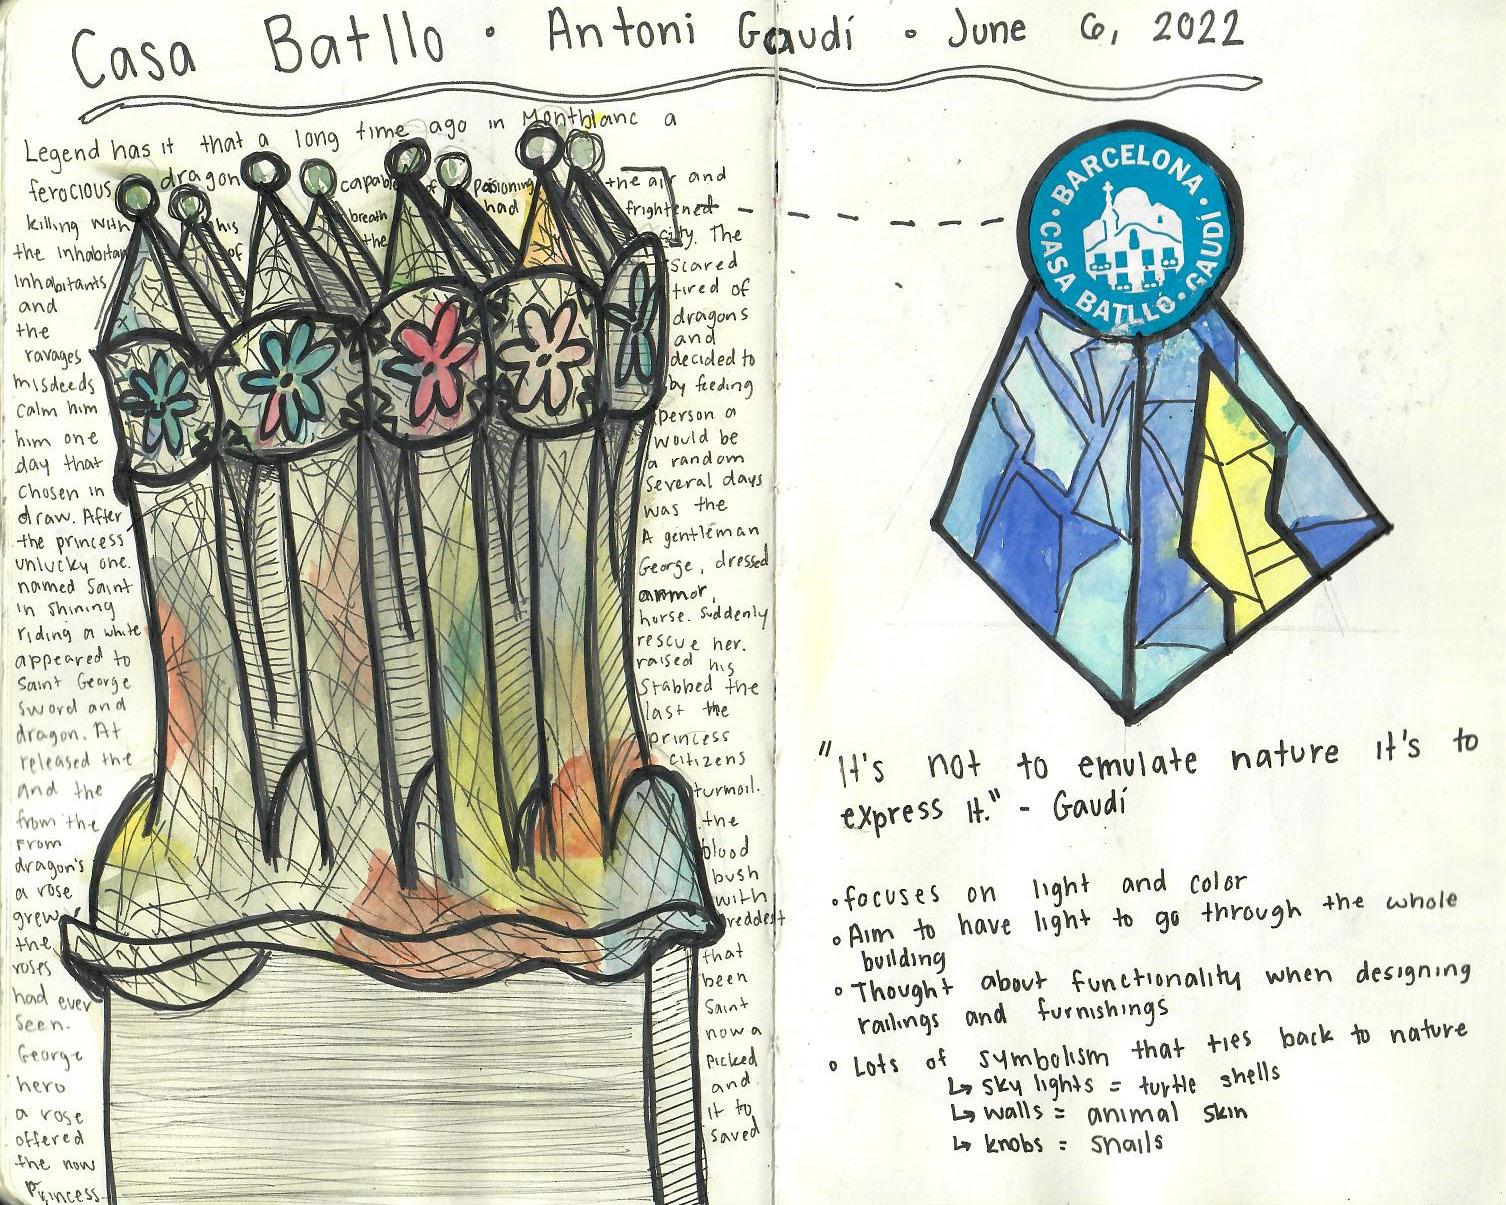 Casa Batllo • Antoni Gaudí • June 6, 2022
Legend has it that a long time ago in Montblanc a
ferocious dragon capable of poisioning the air and
killing with his breath had frightened
the inhabitan of the city. The
inhabitants scared
and tired of
the dragons
ravages and
misdeeds decided to
calm him by feeding
him one person a
day that would be
chosen in a random
draw. After Several days
the princess was the
unlucky one. A gentleman
named Saint George, dressed
in shining armor,
riding a white horse. Suddenly
appeared to rescue her.
Saint George raised his
sword and Stabbed the
dragon. At last the
released the princess
and the citizens
from the turmoil.
From the
dragon's blood
a rose bush
grew with
the reddest
roses that
had ever been
seen. Saint
George now a
hero picked
a rose and
offered it to
the now saved
Princess
BARCELONA
CASA BATLLÓ • GAUDÍ
"It's not to emulate nature it's to
express it." - Gaudí
• focuses on light and color
• Aim to have light to go through the whole
building
• Thought about functionality when designing
railings and furnishings
• Lots of symbolism that ties back to nature
↳ sky lights = turtle shells
↳ walls = animal skin
↳ knobs = snails